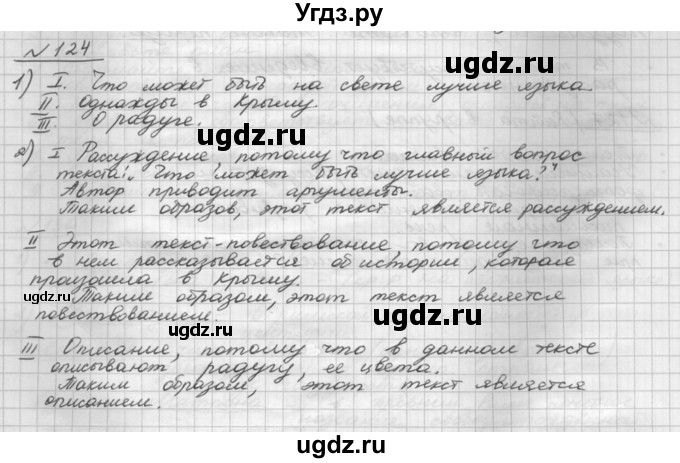 Угдз.ру
№124
1) I. Что может быть на свете лучше языка
II. Однажды в Крыму.
III. О радуге.
2) I Рассуждение, потому что главный вопрос
текста: „Что может быть лучше языка?"
Автор приводит аргументы.
Таким образов, этот текст является рассуждением.
II Этот текст-повествование, потому что
в нем рассказывается об истории, которая
произошла в Крыму.
Таким образом, этот текст является
повествованием.
III Описание, потому что в данном тексте
описывают радугу, ее цвета.
Таким образом, этот текст является
описанием.
ugdz.ru
ugdz.ru
ugdz.ru
ugdz.ru
ugdz.ru
ugdz.ru
ugdz.ru
ugdz.ru
ugdz.ru